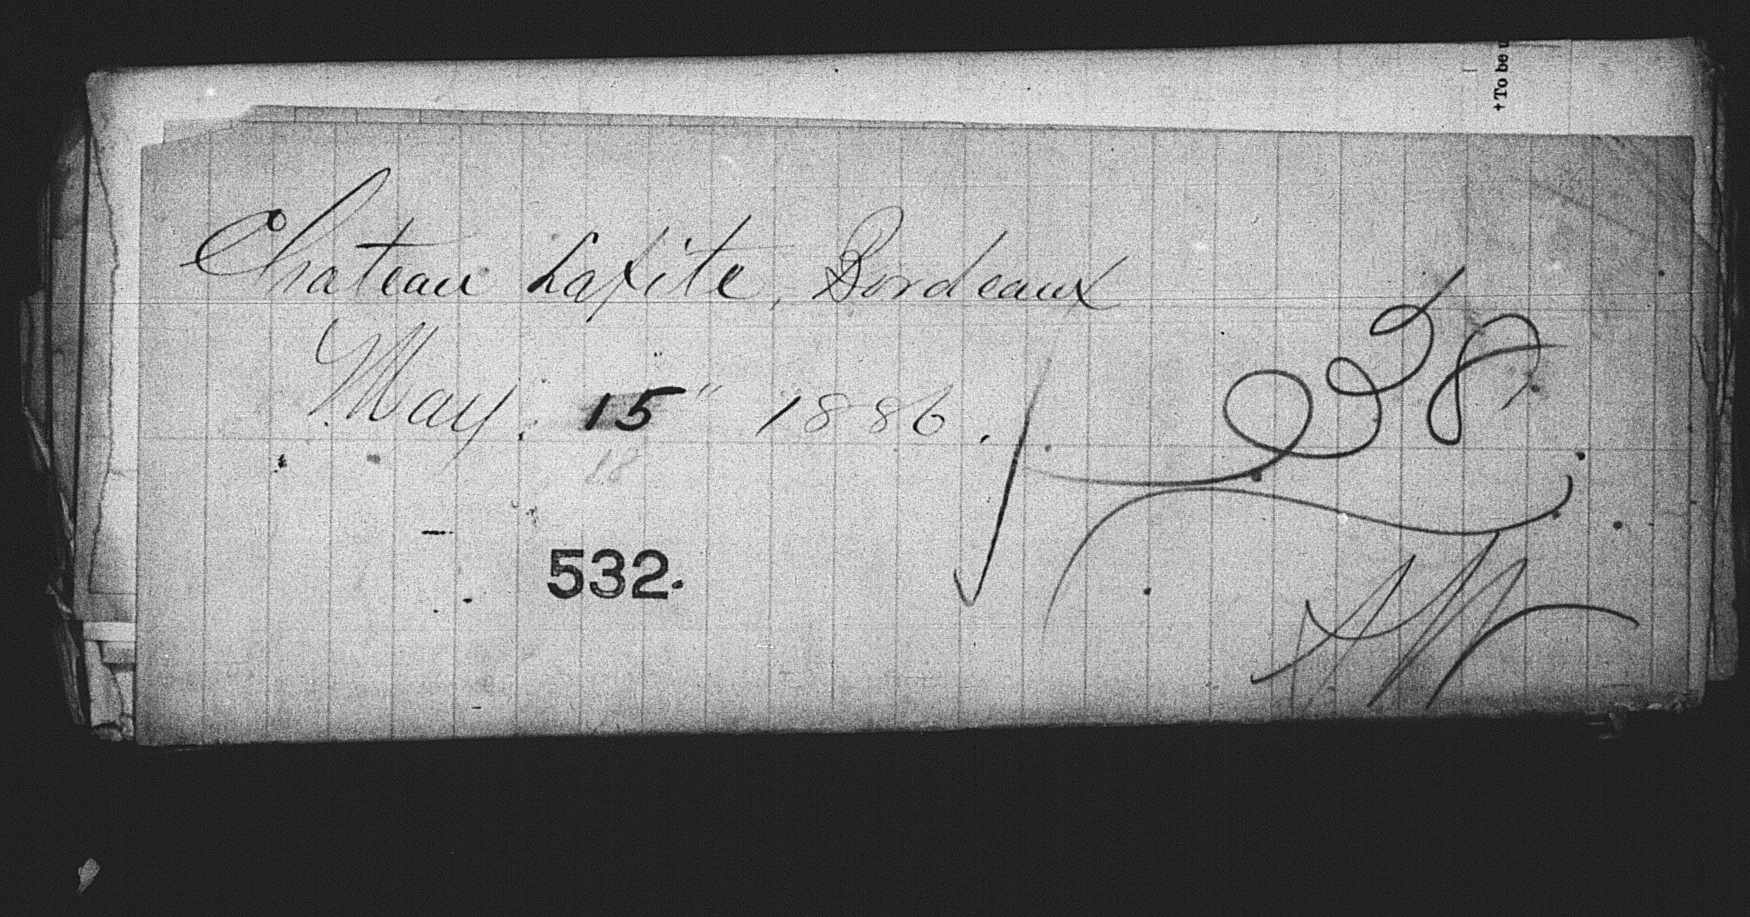 +To be
Chateau Lafite, Bordeaux
May. 15" 1886.
18
238
532.